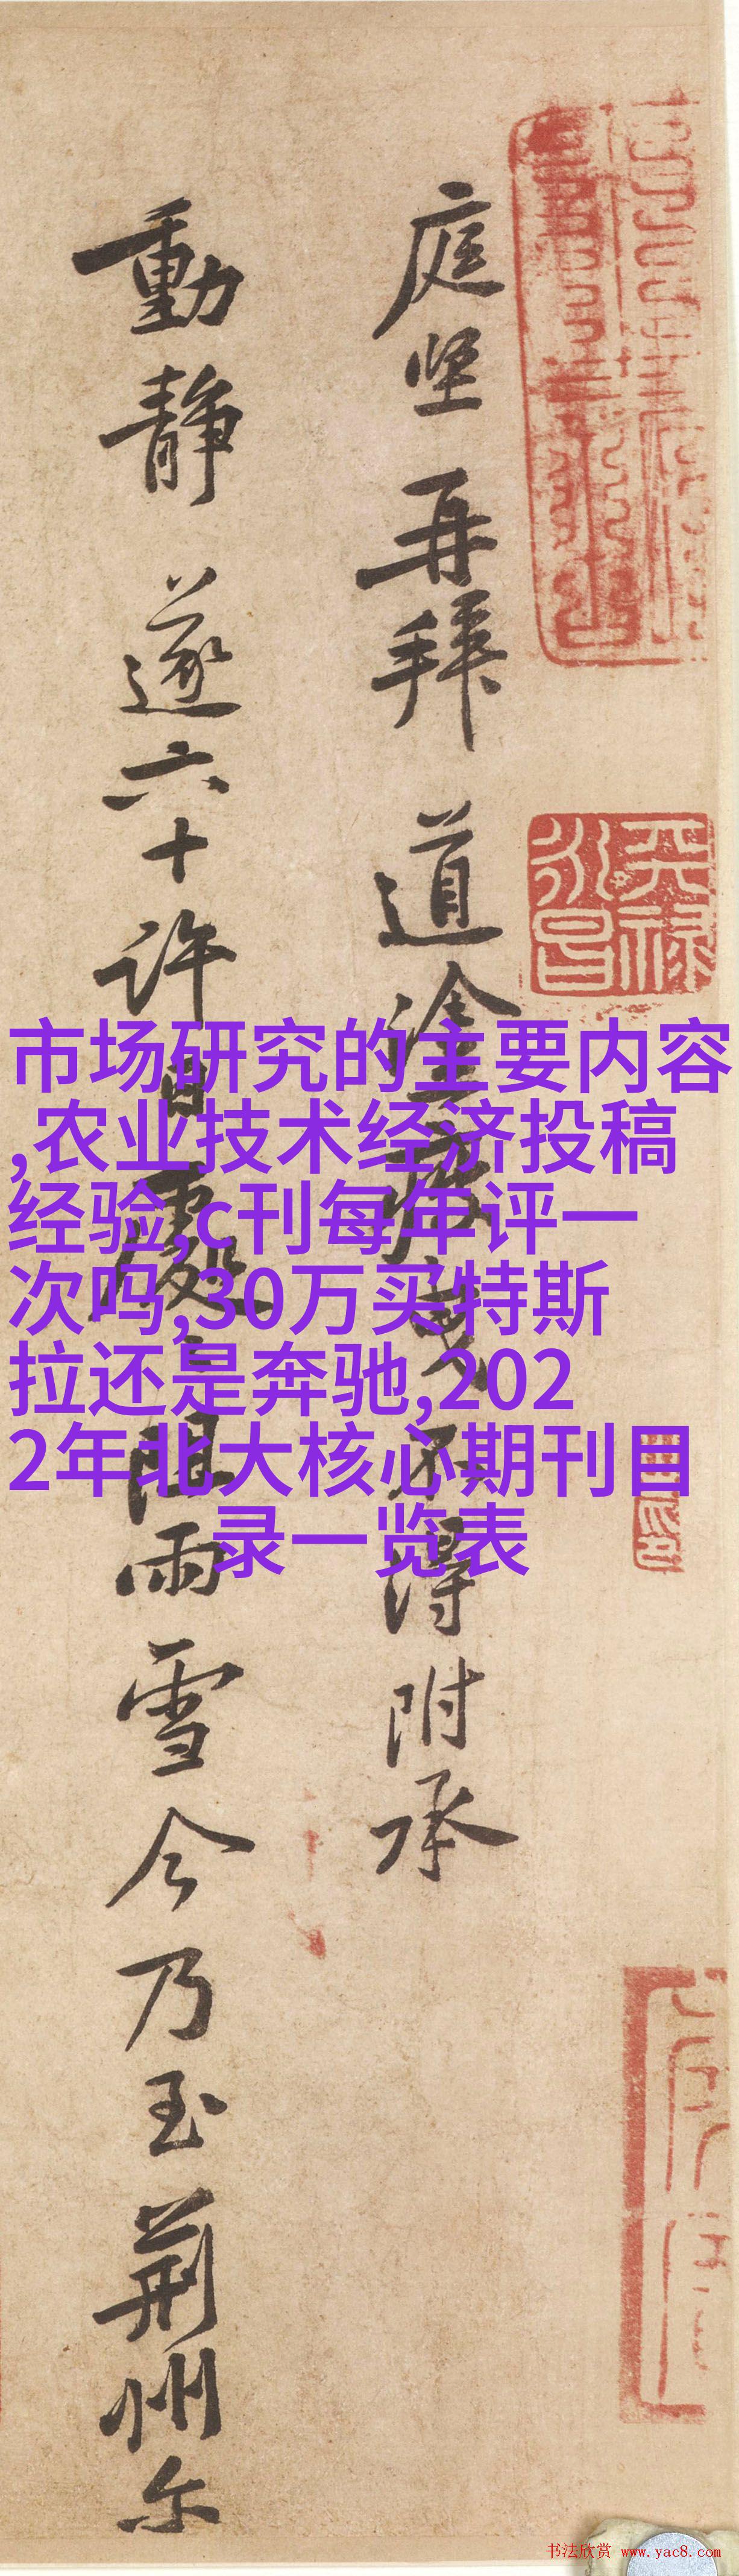 庭坚再拜道塗疲曳不得附承
動静遂六十許日處處阻雨雪今乃至荆州尔
天禄
永昌
市场研究的主要内容
,农业技术经济投稿
经验,c刊每年评一
次吗,30万买特斯
拉还是奔驰,202
2年北大核心期刊目
录一览表
书法欣赏 www.yac8.com